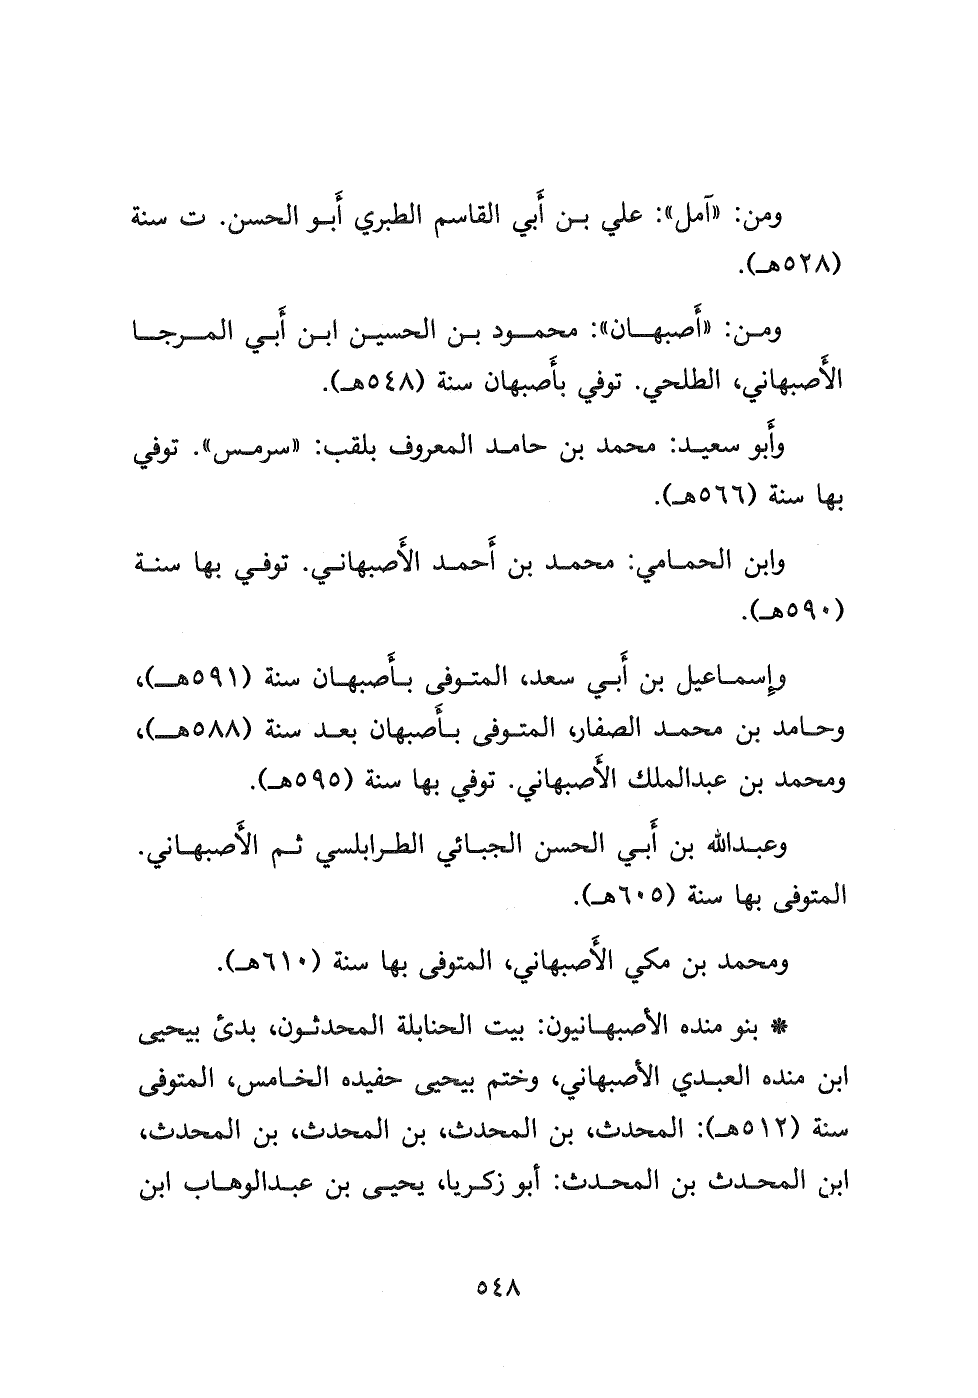 ومن: «آمل»: علي بن أَبي القاسم الطبري أَبو الحسن. ت سنة
(٥٢٨هـ).
ومن: «أَصبهان»: محمود بن الحسين ابن أَبي المرجا
الأَصبهاني، الطلحي. توفي بأَصبهان سنة (٥٤٨هـ).
وأَبو سعيد: محمد بن حامد المعروف بلقب: «سرمس». توفي
بها سنة (٥٦٦هـ).
وابن الحمامي: محمد بن أَحمد الأَصبهاني. توفي بها سنة
(٥٩٠هـ).
وإسماعيل بن أَبي سعد، المتوفى بأَصبهان سنة (٥٩١هـ)،
وحامد بن محمد الصفار، المتوفى بأَصبهان بعد سنة (٥٨٨هـ)،
ومحمد بن عبدالملك الأَصبهاني. توفي بها سنة (٥٩٥هـ).
وعبدالله بن أَبي الحسن الجبائي الطرابلسي ثم الأَصبهاني.
المتوفى بها سنة (٦٠٥هـ).
ومحمد بن مكي الأَصبهاني، المتوفى بها سنة (٦١٠هـ).
* بنو منده الأصبهانيون: بيت الحنابلة المحدثون، بدئ بيحيى
ابن منده العبدي الأصبهاني، وختم بيحيى حفيده الخامس، المتوفى
سنة (٥١٢هـ): المحدث، بن المحدث، بن المحدث، بن المحدث،
ابن المحدث بن المحدث: أبو زكريا، يحيى بن عبدالوهاب ابن
٥٤٨